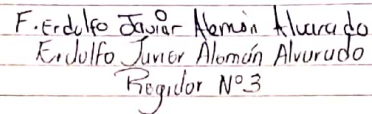 F. Erdulfo Javiar Alemán Alvarado
Erdulfo Javier Alemán Alvarado
Regidor Nº3